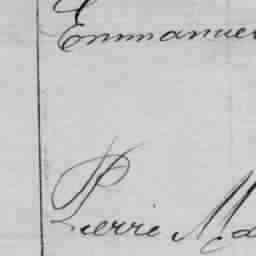 Emmanuel
Pierre Ma